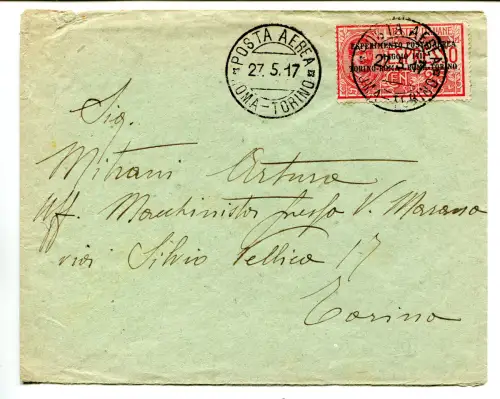 POSTA AEREA
27.5.17
ROMA-TORINO
POSTA AEREA
ESPERIMENTO POSTA AEREA
MAGGIO 1917
TORINO-ROMA · ROMA-TORINO
27.5.17
ROMA-TORINO
Sig.
Mitrani Arturo
Uff. Macchinista presso V. Marano
via Silvio Pellico 17
Torino